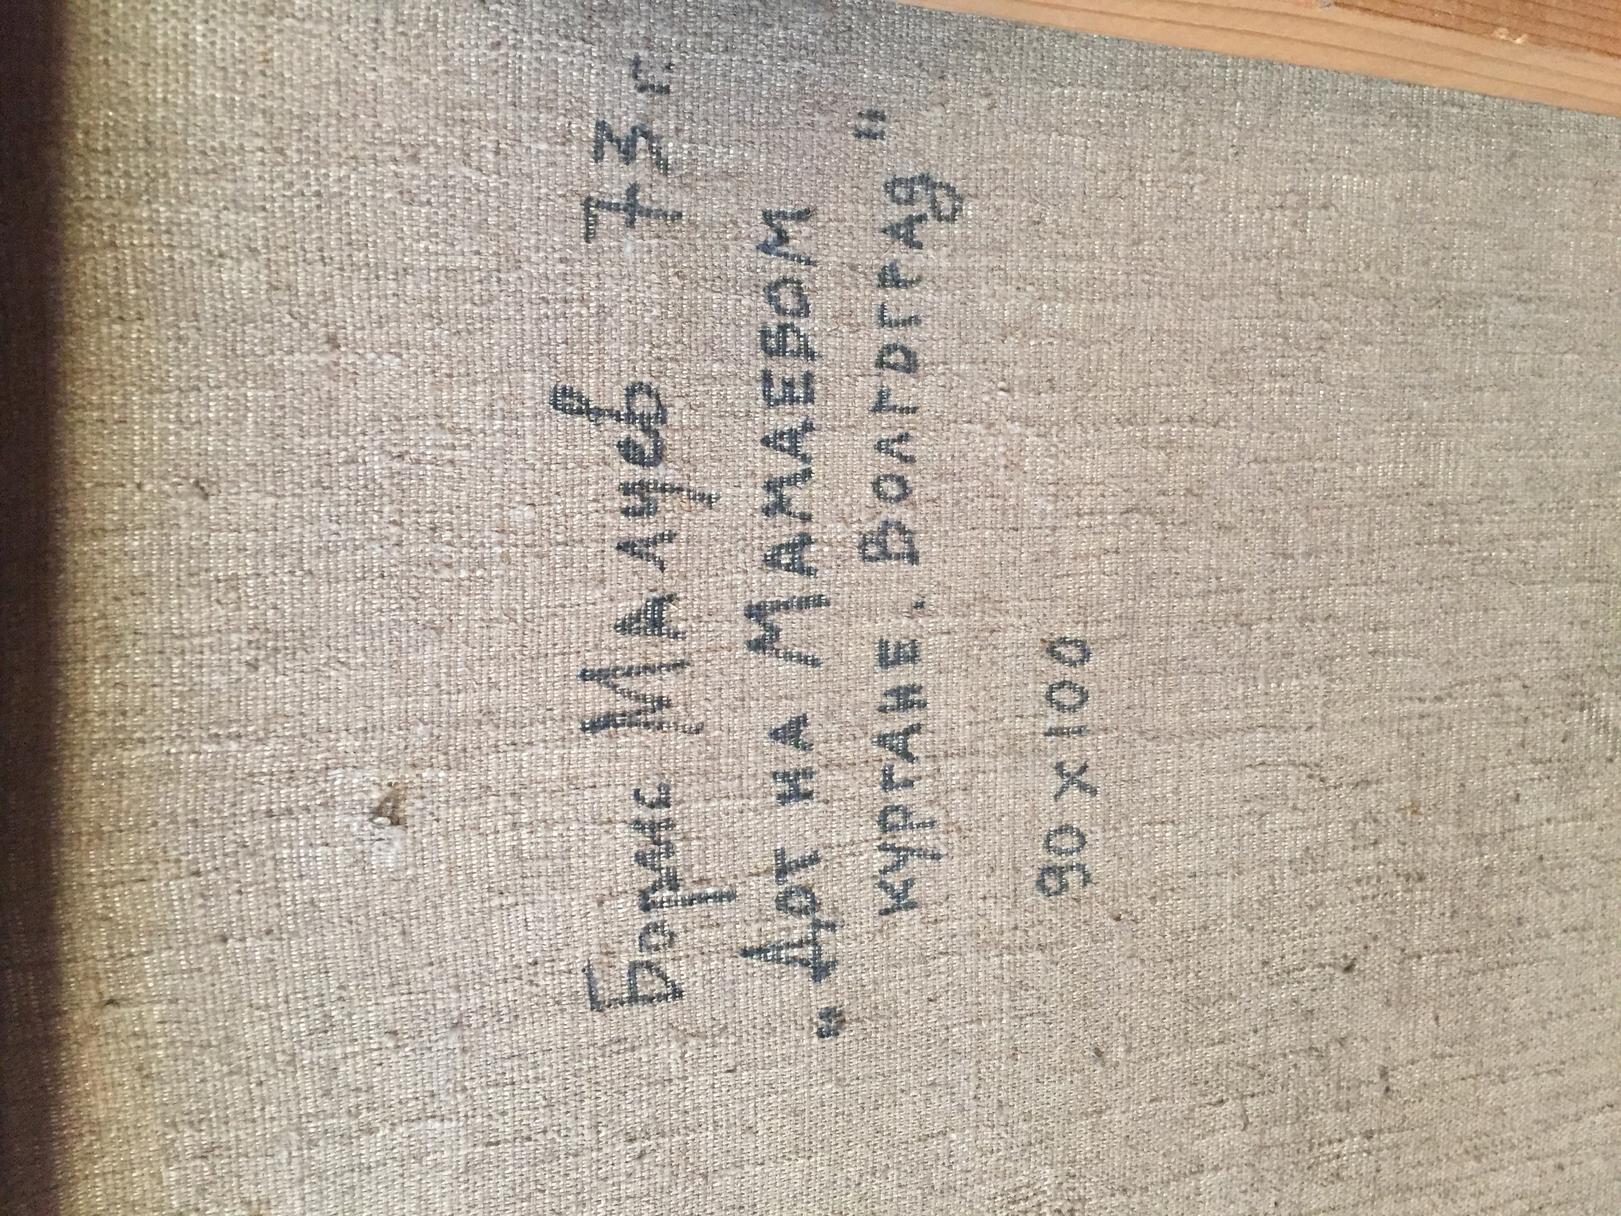 Борис Малуев 73 г.
"Дот на Мамаевом
кургане. Волгоград"
90 х 100